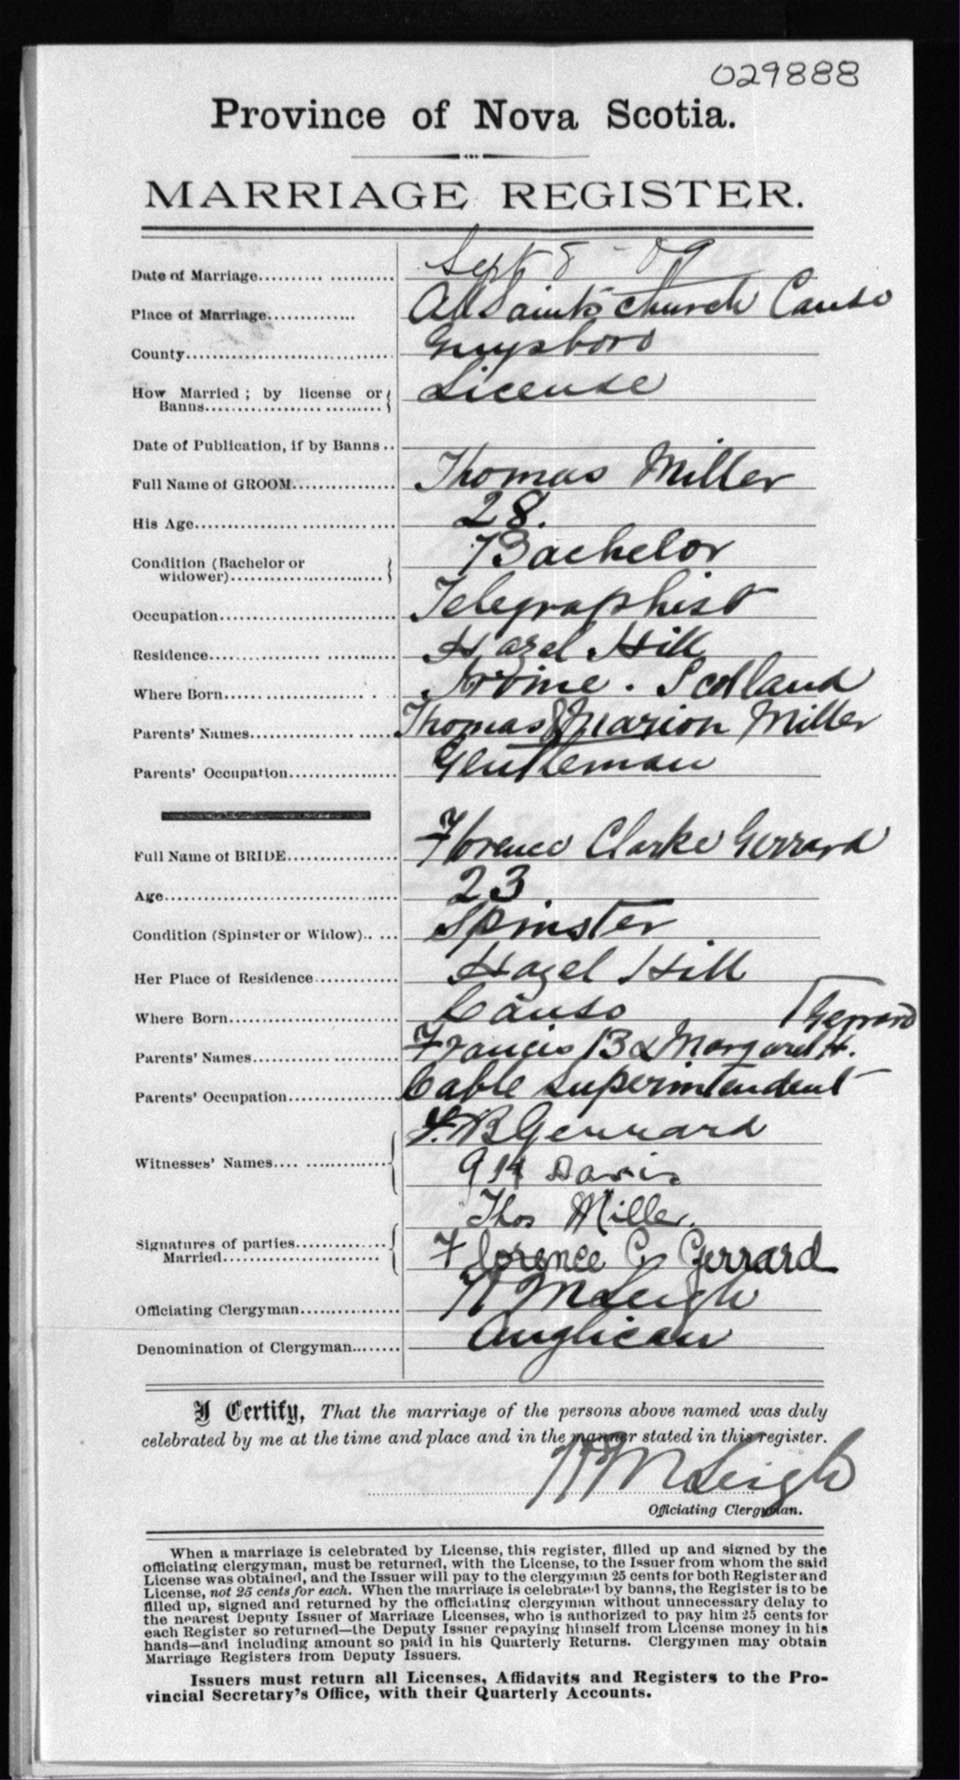 029888
Province of Nova Scotia.
MARRIAGE REGISTER.
Date of Marriage.......... Sept 8 - 09
Place of Marriage............. All Saints church Canso
County............................... Guysboro
How Married ; by license or License
Banns..............................
Date of Publication, if by Banns ..
Full Name of GROOM................ Thomas Miller
His Age............................... 28.
Condition (Bachelor or Bachelor
widower)..........................
Occupation........................... Telegraphist
Residence............................ Hazel Hill
Where Born........................ Irvine . Scotland
Parents' Names.................... Thomas & Marion Miller
Parents' Occupation................ Gentleman
Full Name of BRIDE................ Florence Clarke Gerrard
Age.................................... 23
Condition (Spinster or Widow).. ... Spinster
Her Place of Residence............ Hazel Hill
Where Born........................ Canso
Gerrard
Parents' Names.................... Francis B & Margaret H.
Parents' Occupation................ Cable Superintendent
F.B Gerrard
Witnesses' Names.... ............ Davis
Thos Miller.
Signatures of parties..............
Married........................ Florence C. Gerrard
Officiating Clergyman.............. Leigh
Denomination of Clergyman........ Anglican
I Certify, That the marriage of the persons above named was duly
celebrated by me at the time and place and in the manner stated in this register.
Leigh
Officiating Clergyman.
When a marriage is celebrated by License, this register, filled up and signed by the
officiating clergyman, must be returned, with the License, to the Issuer from whom the said
License was obtained, and the Issuer will pay to the clergyman 25 cents for both Register and
License, not 25 cents for each. When the marriage is celebrated by banns, the Register is to be
filled up, signed and returned by the officiating clergyman without unnecessary delay to
the nearest Deputy Issuer of Marriage Licenses, who is authorized to pay him 25 cents for
each Register so returned—the Deputy Issuer repaying himself from License money in his
hands—and including amount so paid in his Quarterly Returns. Clergymen may obtain
Marriage Registers from Deputy Issuers.
Issuers must return all Licenses, Affidavits and Registers to the Pro-
vincial Secretary's Office, with their Quarterly Accounts.